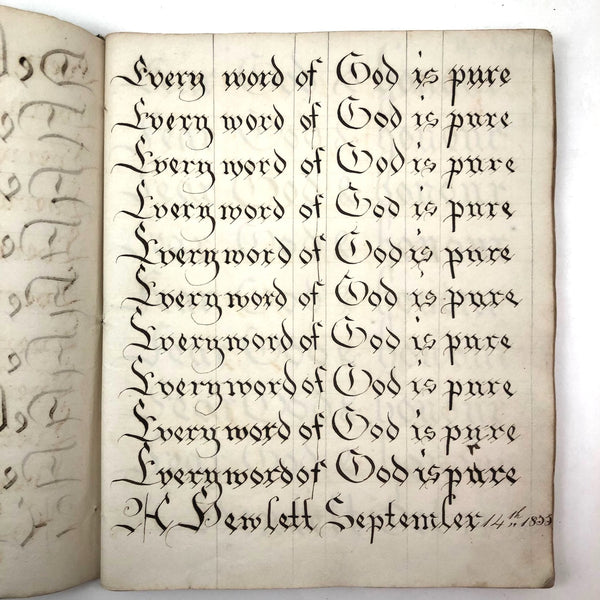 Every word of God is pure
Every word of God is pure
Every word of God is pure
Every word of God is pure
Every word of God is pure
Every word of God is pure
Every word of God is pure
Every word of God is pure
Every word of God is pure
Every word of God is pure
Hewlett September 14th